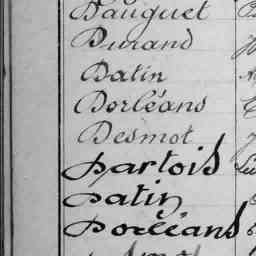 Dauguet
Durand
Datin
Dorléans
Desmot
Dartois
Datin
Dorléans